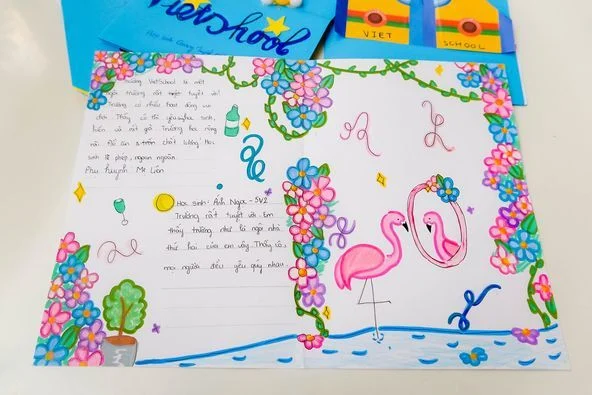 Vietshool
VIET
SCHOOL
Trường VietSchool là một
ngôi trường rất tuyệt vời!
Trường có nhiều hoạt động vui
chơi Thầy cô thì yêu học sinh,
luôn và rất giỏi Trường học rộng
rãi. Đồ ăn chất lượng Học
sinh lễ phép, ngoan ngoãn.
Phụ huynh Mẹ Liên
Học sinh: Ánh Ngọc - 5V2
Trường rất tuyệt với em
thấy trường như là ngôi nhà
thứ hai của em vậy. Thầy cô,
mọi người đều yêu quý nhau.